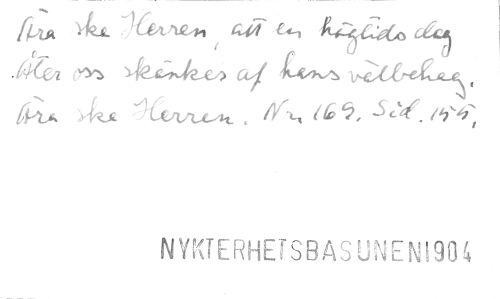 Ära ske Herren, att en högtidsdag
Åter oss skänkes af hans välbehag.
Ära ske Herren. Nr. 169. Sid. 155.
NYKTERHETSBASUNEN1904